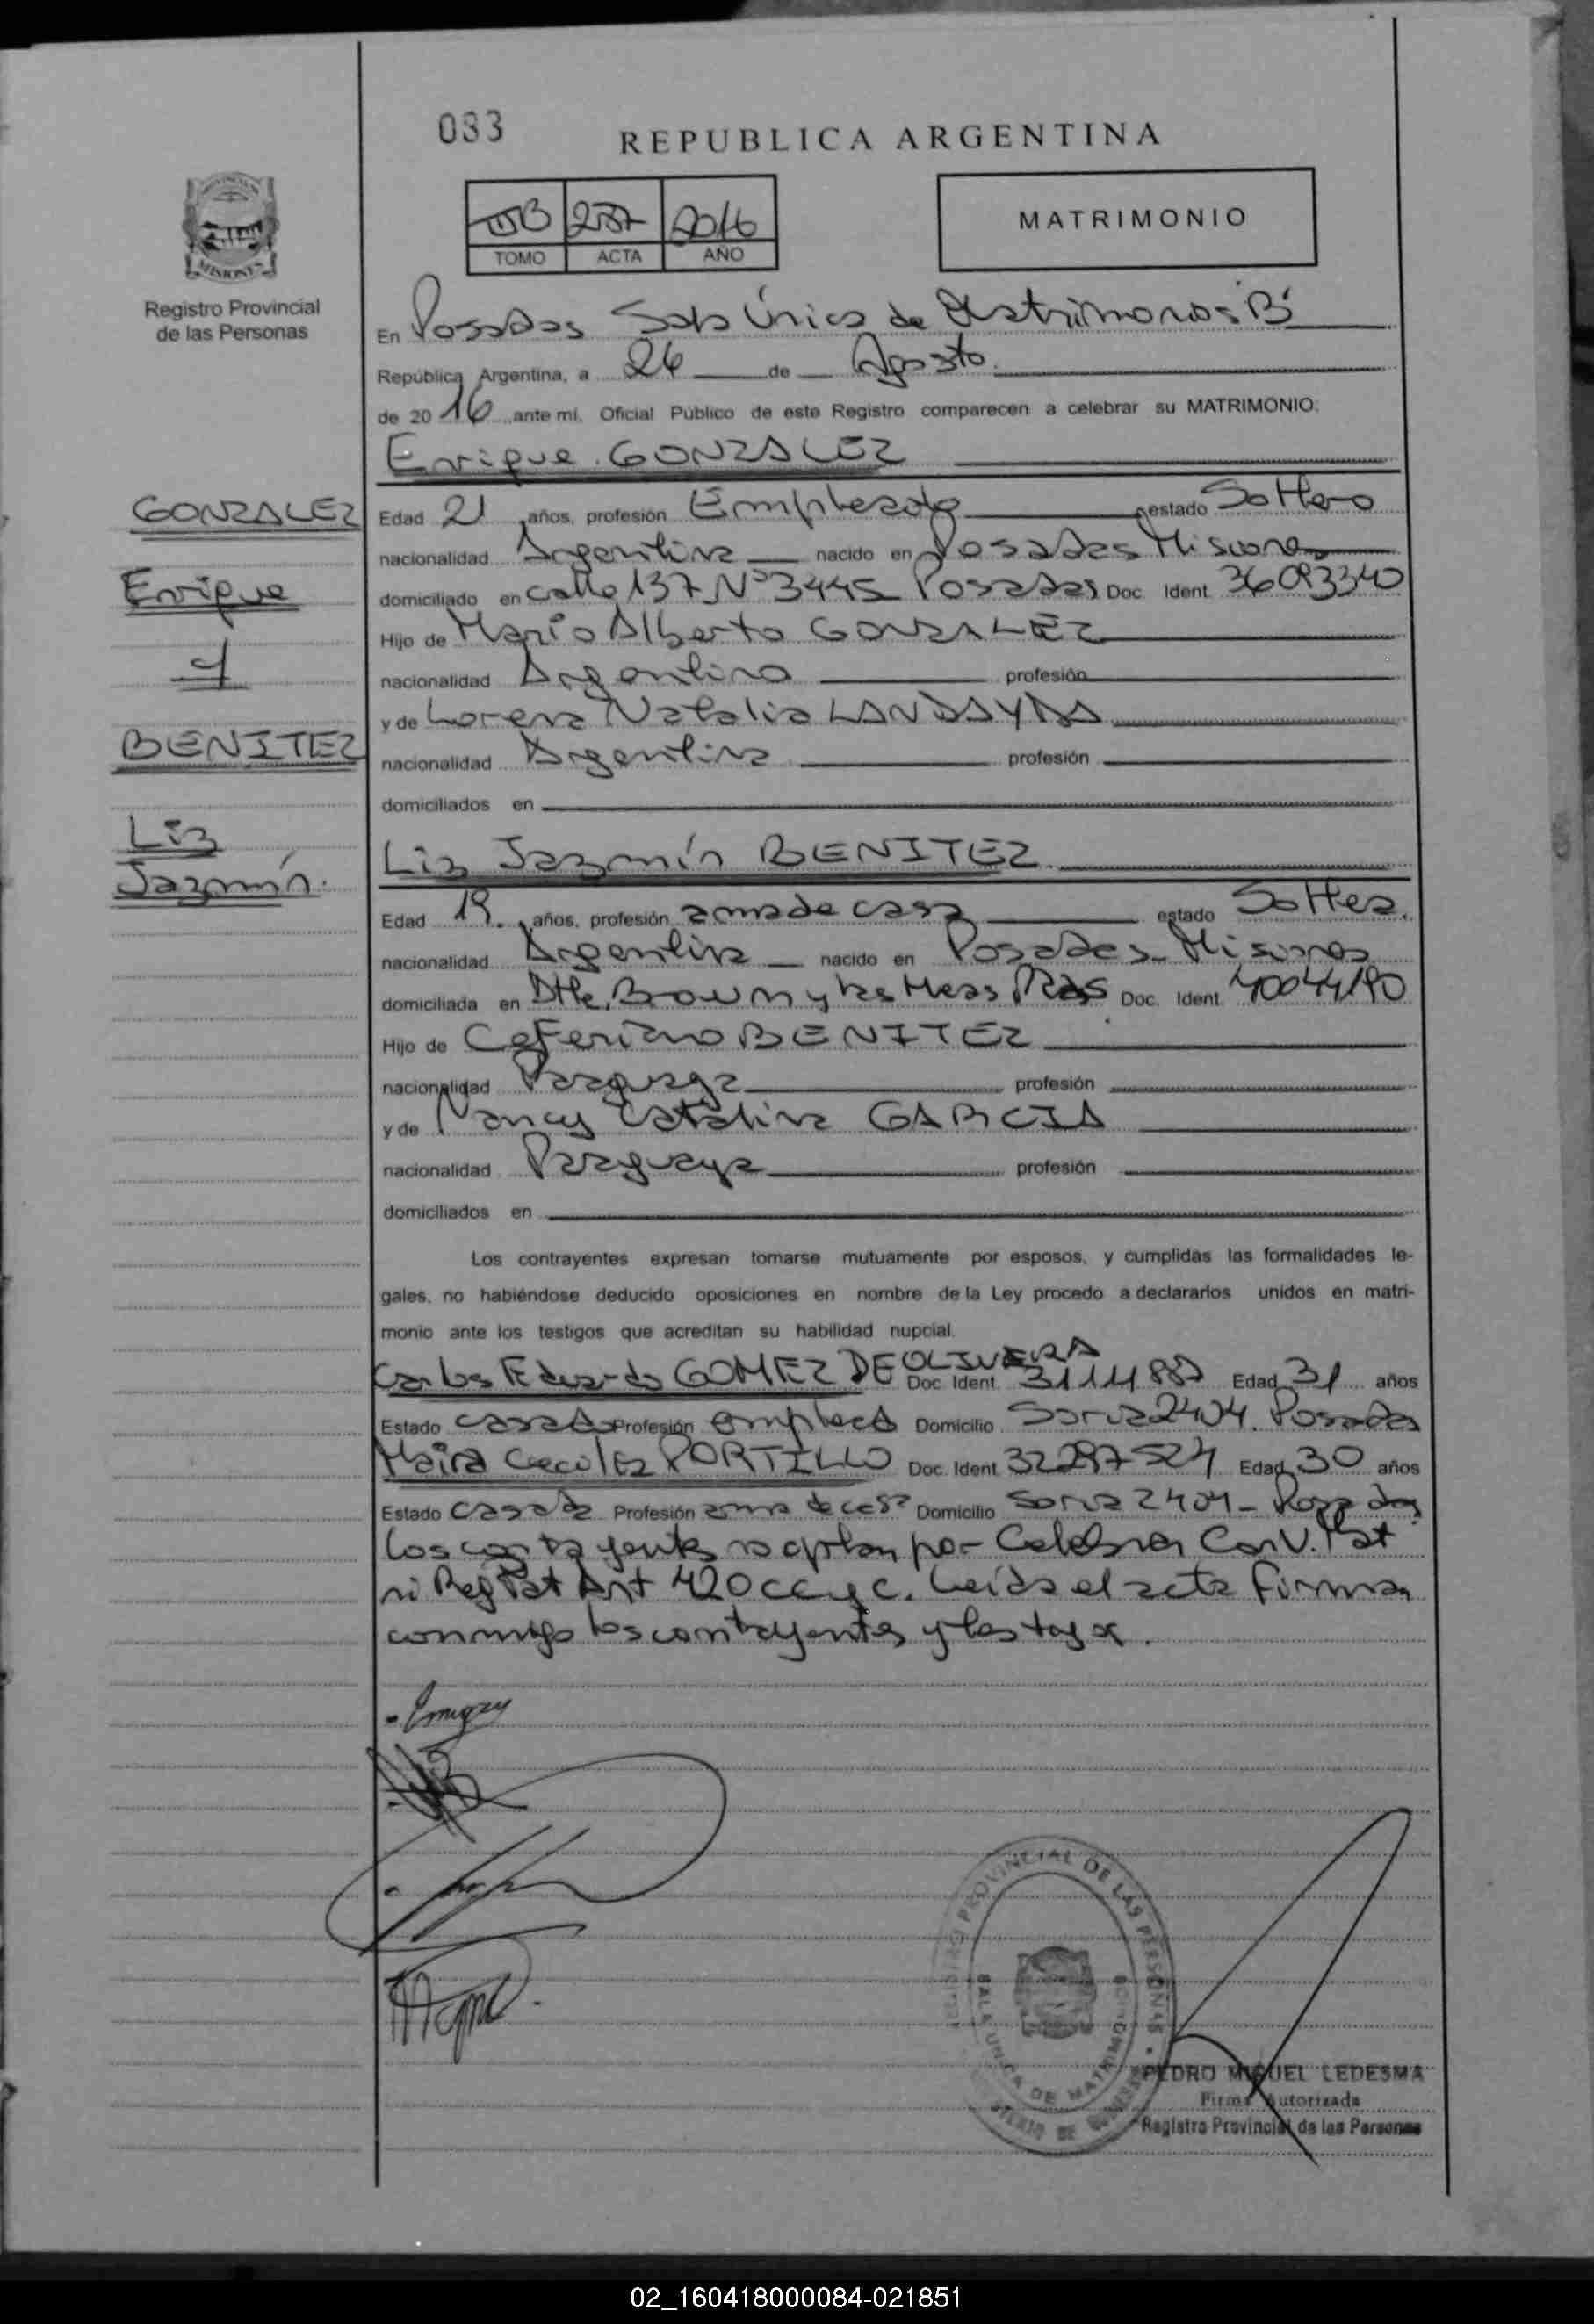 033
REPUBLICA ARGENTINA
2016
TOMO ACTA AÑO
MATRIMONIO
PROVINCIA DE
MISIONES
Registro Provincial
de las Personas
En Posadas Sala Única de Matrimonios B
República Argentina, a 26 de Agosto
de 20 16 ante mí, Oficial Público de este Registro comparecen a celebrar su MATRIMONIO:
Enrique GONZALEZ
GONZALEZ
Enrique
y
BENITEZ
Liz
Jazmín.
Edad 21 años, profesión Empleado estado Soltero
nacionalidad Argentina nacido en Posadas Misiones
domiciliado en calle 137 Nº 3445 Posadas Doc. Ident. 36093340
Hijo de Mario Alberto GONZALEZ
nacionalidad Argentina profesión
y de Lorena Natalia LANDAYDA
nacionalidad Argentina profesión
domiciliados en
Liz Jazmín BENITEZ
Edad 19 años, profesión ama de casa estado Soltera
nacionalidad Argentina nacido en Posadas Misiones
domiciliada en Alte. Brown y las Heras Pdas Doc. Ident. 40044190
Hijo de Ceferino BENITEZ
nacionalidad Paraguaya profesión
y de Nancy Catalina GARCIA
nacionalidad Paraguaya profesión
domiciliados en
Los contrayentes expresan tomarse mutuamente por esposos, y cumplidas las formalidades le-
gales, no habiéndose deducido oposiciones en nombre de la Ley procedo a declararlos unidos en matri-
monio ante los testigos que acreditan su habilidad nupcial.
Carlos Eduardo GOMEZ DE OLIVERA Doc. Ident. Edad 31 años
Estado casado Profesión empleado Domicilio 2404 Posadas
Maira PORTILLO Doc. Ident. 32297524 Edad 30 años
Estado casada Profesión ama de casa Domicilio 2404 - Posadas
Los contrayentes no optan por Celebrar Conv. Mat
ni Reg Pat Art 420 CCyC. Leída el acta firman
conmigo los contrayentes y los
REGISTRO PROVINCIAL DE LAS PERSONAS
SALA UNICA DE MATRIMONIOS
PEDRO MIGUEL LEDESMA
Firma Autorizada
Registro Provincial de las Personas
02_160418000084-021851